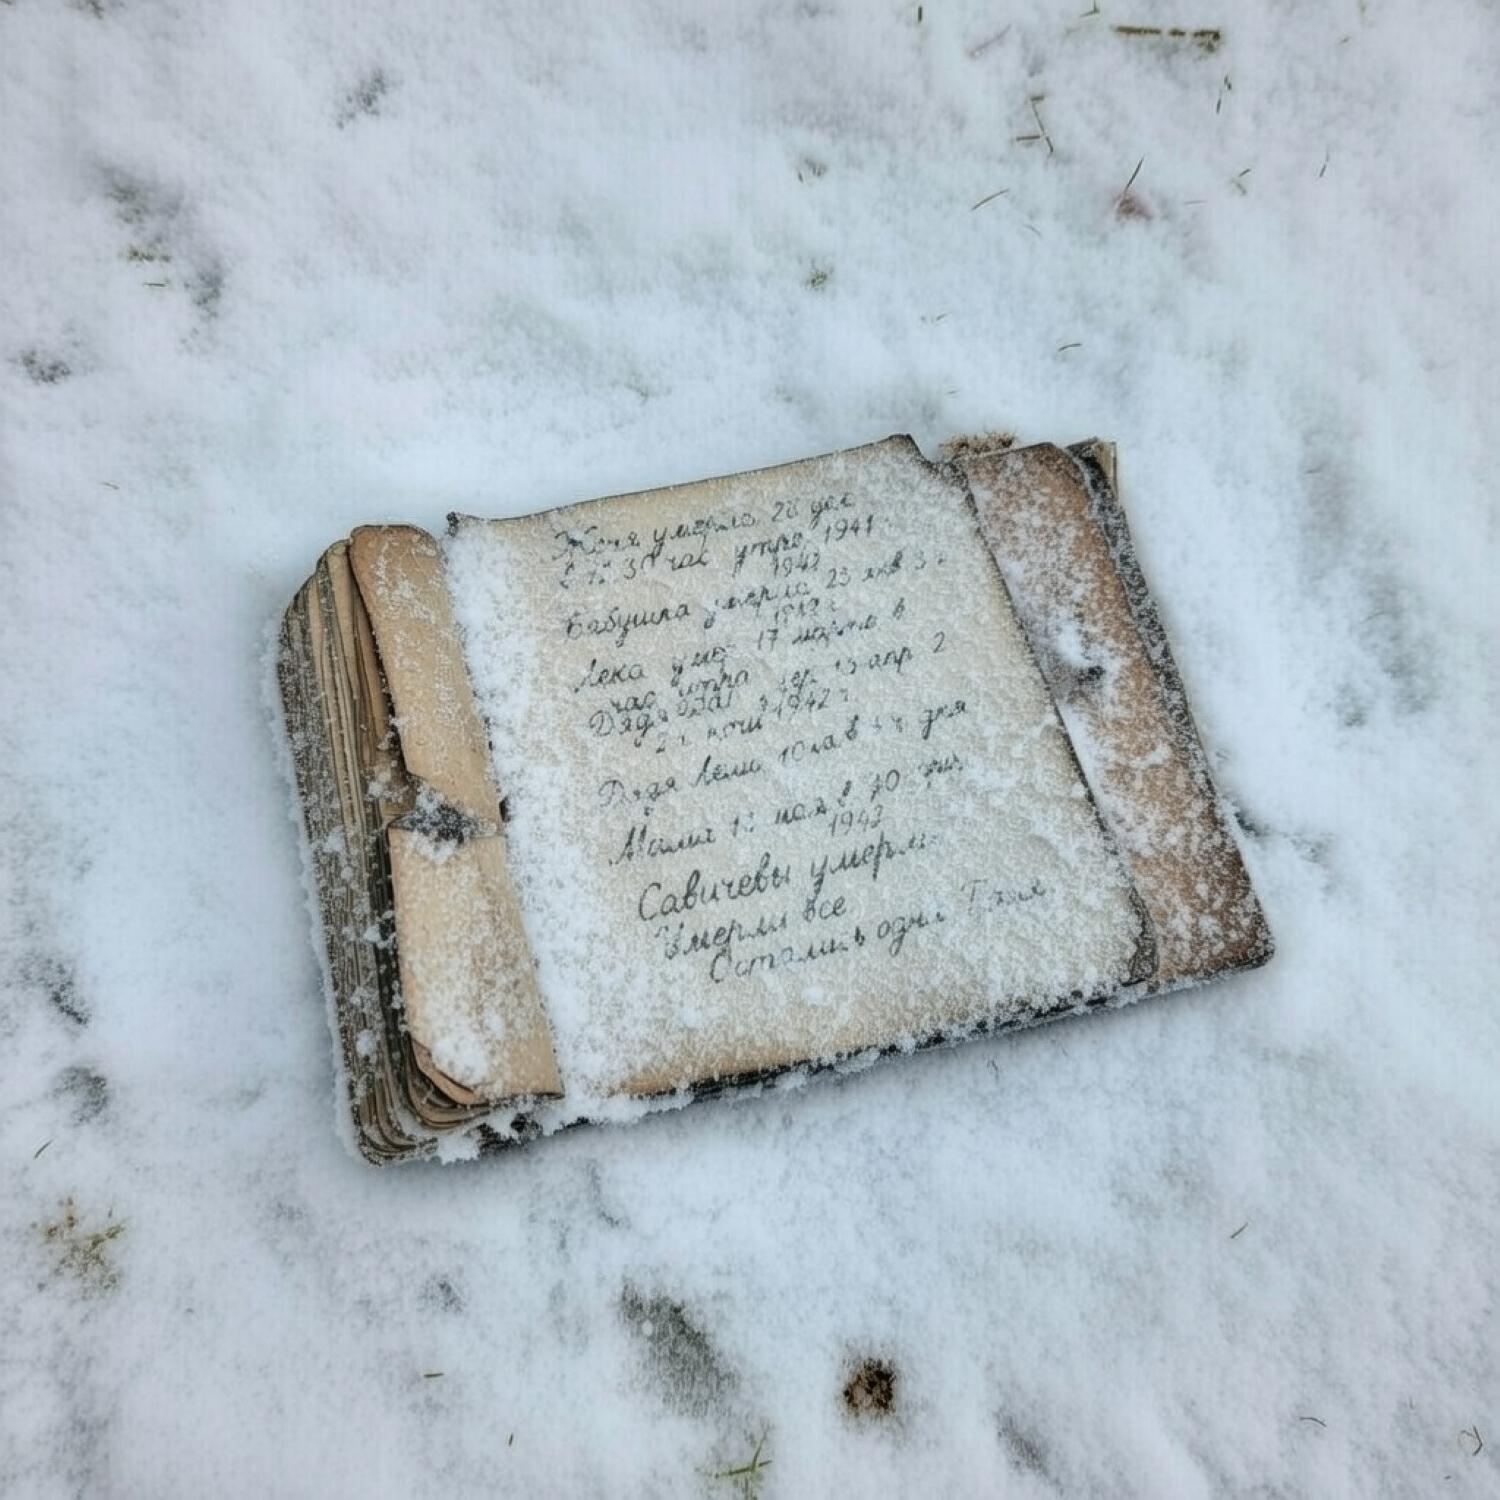 Женя умерла 28 дек
в 12 30 час утра 1941
1942
Бабушка умерла 25 янв 3
1942
Лека умер 17 марта в
час утра
Дядя Вас 13 апр 2
2 ночи 1942 г.
Дядя Леша 10 дня
Мама 13 мая в 30
1943
Савичевы умерли
Умерли все
Осталась одна Таня